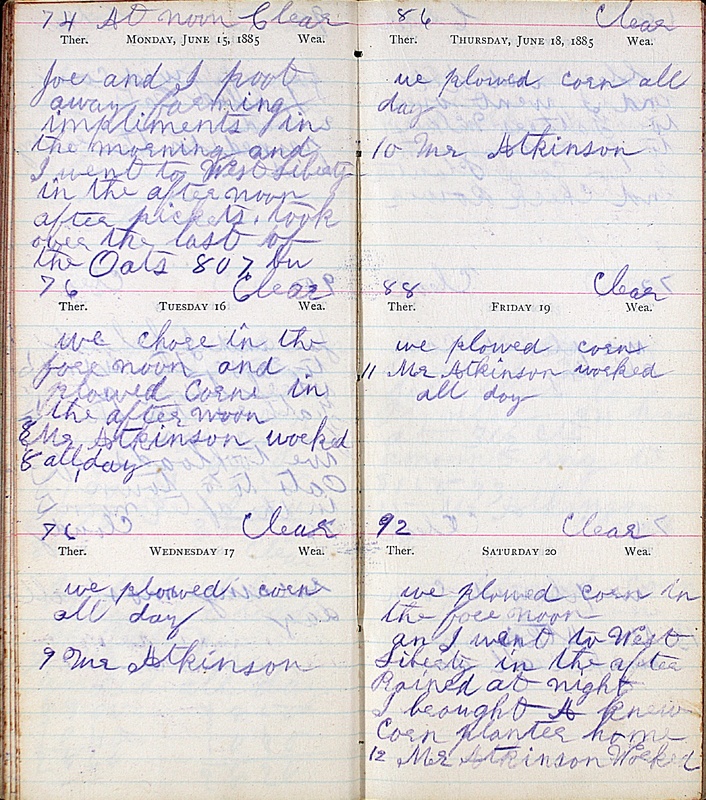 74 At noon Clear
Ther. MONDAY, JUNE 15, 1885 Wea.
Joe and I poot
away farming
impliments in
the morning and
I went to West Liberty
in the afternoon
after pickets, took
over the last of
the Oats 807 bu
76 Clear
Ther. TUESDAY 16 Wea.
we chore in the
fore noon and
plowed Corne in
the afternoon
8 Mr Atkinson worked
8 all day
76 Clear
Ther. WEDNESDAY 17 Wea.
we plowed corn
all day
9 Mr Atkinson
86 Clear
Ther. THURSDAY, JUNE 18, 1885 Wea.
we plowed corn all
day
10 Mr Atkinson
88 Clear
Ther. FRIDAY 19 Wea.
we plowed corn
11 Mr Atkinson worked
all day
92 Clear
Ther. SATURDAY 20 Wea.
we plowed corn in
the fore noon
an I went to West
Liberty in the after
Rained at night
I brought A knew
Corn planter home
12 Mr Atkinson Worked